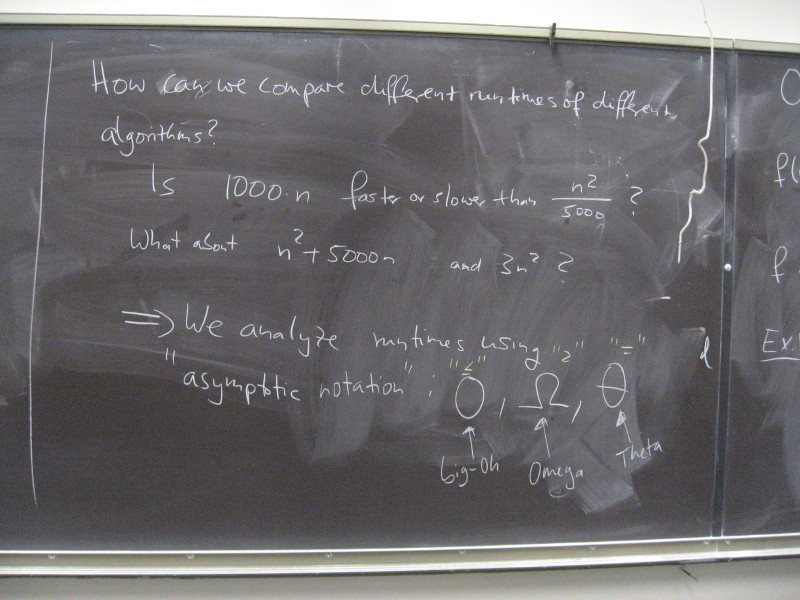 How can we compare different runtimes of different
algorithms?
Is 1000·n faster or slower than n²/5000 ?
What about n²+5000n and 3n² ?
⇒ We analyze runtimes using
"asymptotic notation" : "≤" "≥" "="
O, Ω, Θ
big-Oh Omega Theta
f(
f
Ex.